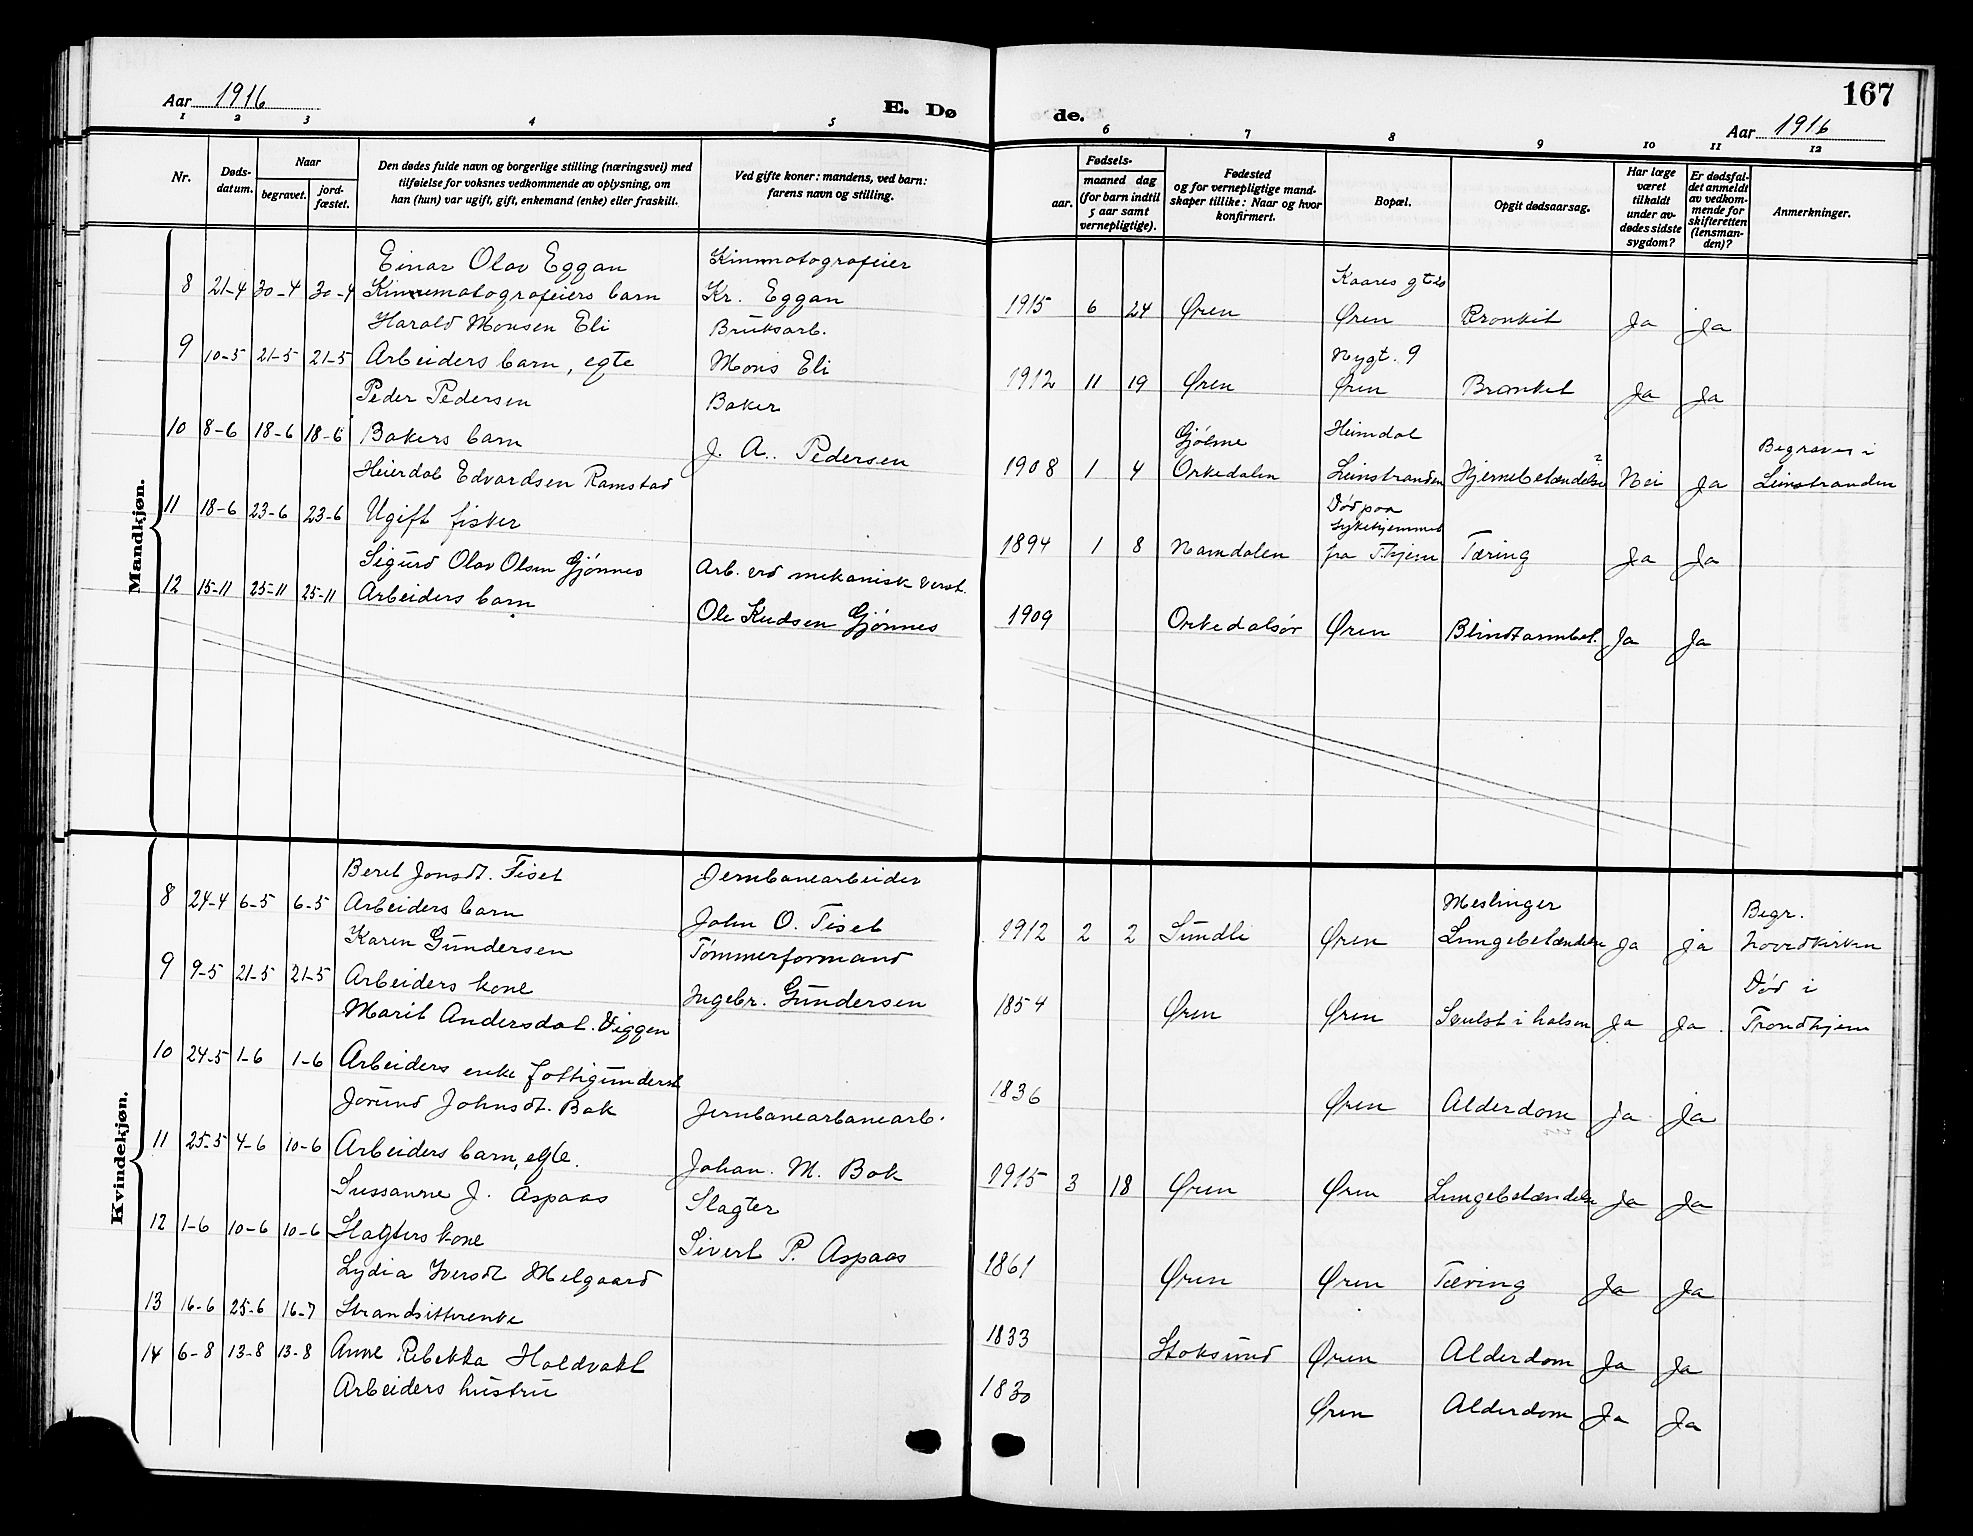 Aar 1916
E. Dø
1 2 3 4 5
Nr.
Døds-
datum.
Naar
begravet.
jord-
fæstet.
Den dødes fulde navn og borgerlige stilling (næringsvei) med
tilføielse for voksnes vedkommende av oplysning, om
han (hun) var ugift, gift, enkemand (enke) eller fraskilt.
Ved gifte koner: mandens, ved barn:
farens navn og stilling.
Mandkjøn.
Einar Olav Eggan Kinmatografeier
8 21-4 30-4 30-4 Kinematografeiers barn Kr. Eggan
Harald Monsen Eli Bruksarb.
9 10-5 21-5 21-5 Arbeiders barn, egte Mons Eli
Peder Pedersen Baker
10 8-6 18-6 18-6 Bakers barn J. A. Pedersen
Heierdal Edvardsen Ramstad
11 18-6 23-6 23-6 Ugift fisker
Sigurd Olav Olsen Gjønnes Arb. ved mekanisk verst.
12 15-11 25-11 25-11 Arbeiders barn Ole Kudsen Gjønnes
Kvindekjøn.
Beret Jonsdt. Fiset Jernbanearbeider
8 24-4 6-5 6-5 Arbeiders barn John O. Fiset
Karen Gundersen Tømmerformand
9 9-5 21-5 21-5 Arbeiders kone Ingebr. Gundersen
Marit Andersdat. Viggen
10 24-5 1-6 1-6 Arbeiders enke fattigunderst
Jorund Johnsdt. Bak Jernbanearbanearb.
11 25-5 4-6 10-6 Arbeiders barn, egte. Johan. M. Bak
Sussanne J. Aspaas Slagter
12 1-6 10-6 10-6 Slagters kone Sivert P. Aspaas
Lydia Iversdt Melgaard
13 16-6 25-6 16-7 Strandsitterenke
14 6-8 13-8 13-8 Anne Rebekka Holdvakt
Arbeiders hustru
167
de.
Aar 1916
6 7 8 9 10 11 12
Fødsels-
aar.
maaned dag
(for barn indtil
5 aar samt
vernepligtige).
Fødested
og for vernepligtige mand-
skaper tillike: Naar og hvor
konfirmert.
Bopæl.
Opgit dødsaarsag.
Har læge
været
tilkaldt
under av-
dødes sidste
sygdom?
Er dødsfal-
det anmeldt
av vedkom-
mende for
skifteretten
(lensman-
den)?
Anmerkninger.
Kaares gtds
1915 6 24 Øren Øren Bronkit Ja ja
Nygt. 9
1912 11 19 Øren Øren Bronkit Ja Ja
Gjølme Heimdal Begraves i
1908 1 4 Orkedalen Leinstranden Hjernebetændelse ? Nei Ja Leinstranden
Død paa
sykehjemmet
1894 1 8 Namdalen fra Thjem Tæring Ja Ja
1909 Orkedalsør Øren Blindtarmbet. Ja Ja
Meslinger Begr.
1912 2 2 Sundli Øren Lungebetændelse Ja ja hovedkirken
Død i
1854 Øren Øren Svulst i halsen Ja Ja. Trondhjem
1836 Øren Alderdom Ja Ja
1915 3 18 Øren Øren Lungebetændelse Ja Ja
1861 Øren Øren Tæring Ja Ja
1833 Stoksund Øren Alderdom Ja Ja
1830 Øren Alderdom Ja Ja